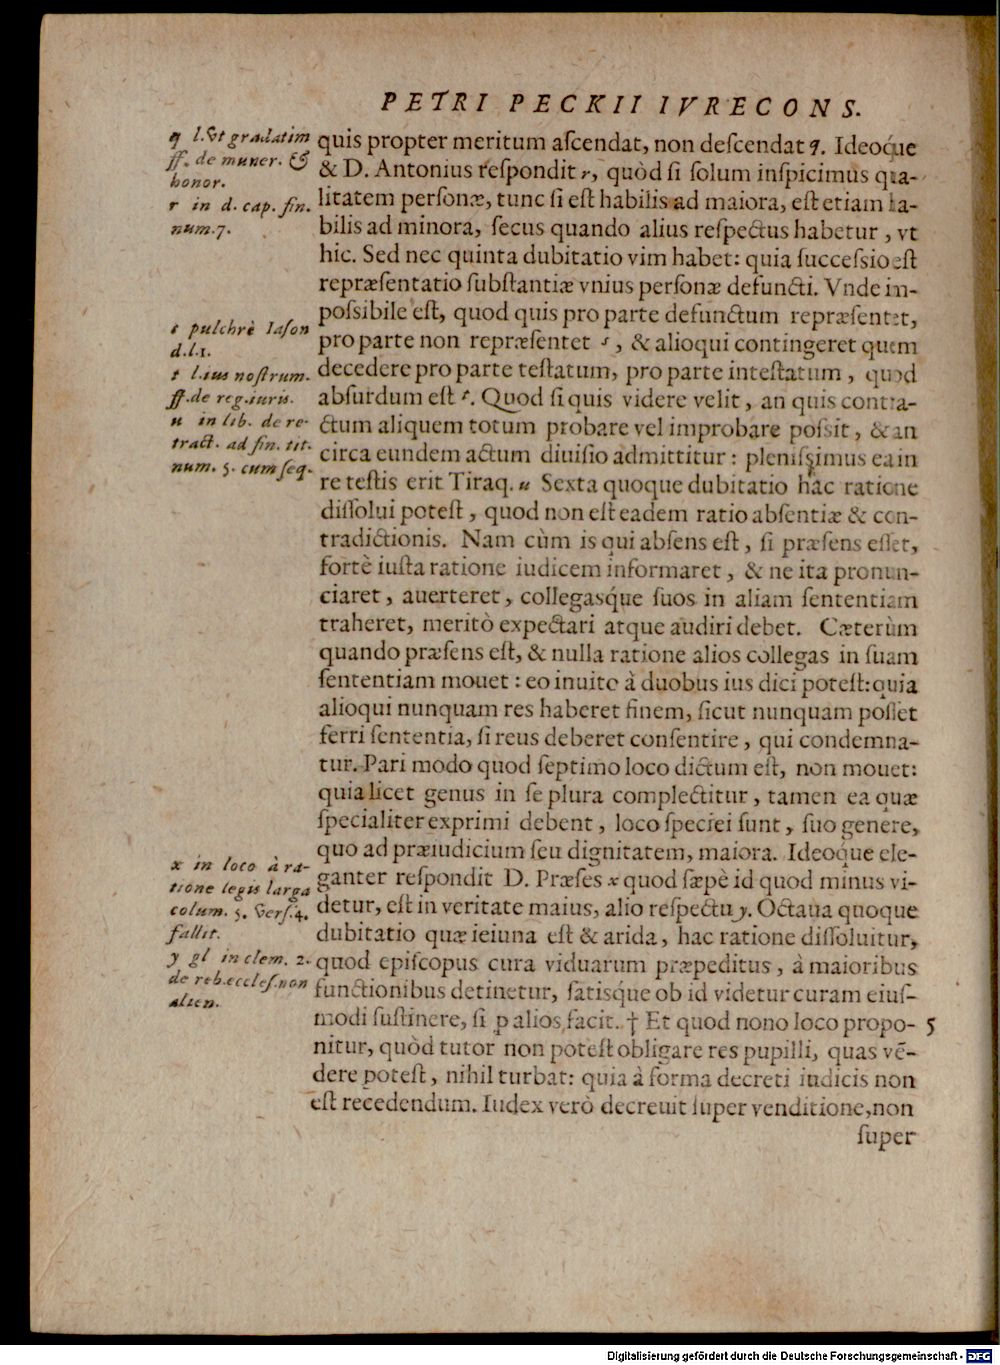 PETRI PECKII IVRECONS.
q l. Vt gradatim
ff. de muner. &
honor.
r in d. cap. fin.
num. 7.
s pulchrè Iason
d.l.1.
t l. ius nostrum.
ff. de reg. iuris.
u in lib. de re-
tract. ad fin. tit.
num. 5. cum seq.
x in loco à ra-
tione legis larga
colum. 5. Vers. 4.
fallit.
y gl in clem. 2.
de reb. eccles. non
alien.
quis propter meritum aſcendat, non deſcendat q. Ideoq́ue
& D. Antonius reſpondit r, quòd ſi ſolum inſpicimus qua-
litatem perſonæ, tunc ſi eſt habilis ad maiora, eſt etiam ha-
bilis ad minora, ſecus quando alius reſpectus habetur, vt
hic. Sed nec quinta dubitatio vim habet: quia ſucceſsio eſt
repræſentatio ſubſtantiæ vnius perſonæ defuncti. Vnde im-
poſsibile eſt, quod quis pro parte defunctum repræſentet,
pro parte non repræſentet s, & alioqui contingeret quem
decedere pro parte teſtatum, pro parte inteſtatum, quod
abſurdum eſt t. Quod ſi quis videre velit, an quis contra-
ctum aliquem totum probare vel improbare poſsit, & an
circa eundem actum diuiſio admittitur: pleniſsimus ea in
re teſtis erit Tiraq. u Sexta quoque dubitatio hac ratione
diſſolui poteſt, quod non eſt eadem ratio abſentiæ & con-
tradictionis. Nam cùm is qui abſens eſt, ſi præſens eſſet,
fortè iuſta ratione iudicem informaret, & ne ita pronun-
ciaret, auerteret, collegasq́ue ſuos in aliam ſententiam
traheret, meritò expectari atque audiri debet. Cæterùm
quando præſens eſt, & nulla ratione alios collegas in ſuam
ſententiam mouet: eo inuito à duobus ius dici poteſt: quia
alioqui nunquam res haberet finem, ſicut nunquam poſſet
ferri ſententia, ſi reus deberet conſentire, qui condemna-
tur. Pari modo quod ſeptimo loco dictum eſt, non mouet:
quia licet genus in ſe plura complectitur, tamen ea quæ
ſpecialiter exprimi debent, loco ſpeciei ſunt, ſuo genere,
quo ad præiudicium ſeu dignitatem, maiora. Ideoq́ue ele-
ganter reſpondit D. Præſes x quod ſæpè id quod minus vi-
detur, eſt in veritate maius, alio reſpectu y. Octaua quoque
dubitatio quæ ieiuna eſt & arida, hac ratione diſſoluitur,
quod epiſcopus cura viduarum præpeditus, à maioribus
functionibus detinetur, ſatisq́ue ob id videtur curam eiuſ-
modi ſuſtinere, ſi ꝑ alios facit. † Et quod nono loco propo- 5
nitur, quòd tutor non poteſt obligare res pupilli, quas vē-
dere poteſt, nihil turbat: quia à forma decreti iudicis non
eſt recedendum. Iudex verò decreuit ſuper venditione, non
ſuper
Digitalisierung gefördert durch die Deutsche Forschungsgemeinschaft - DFG